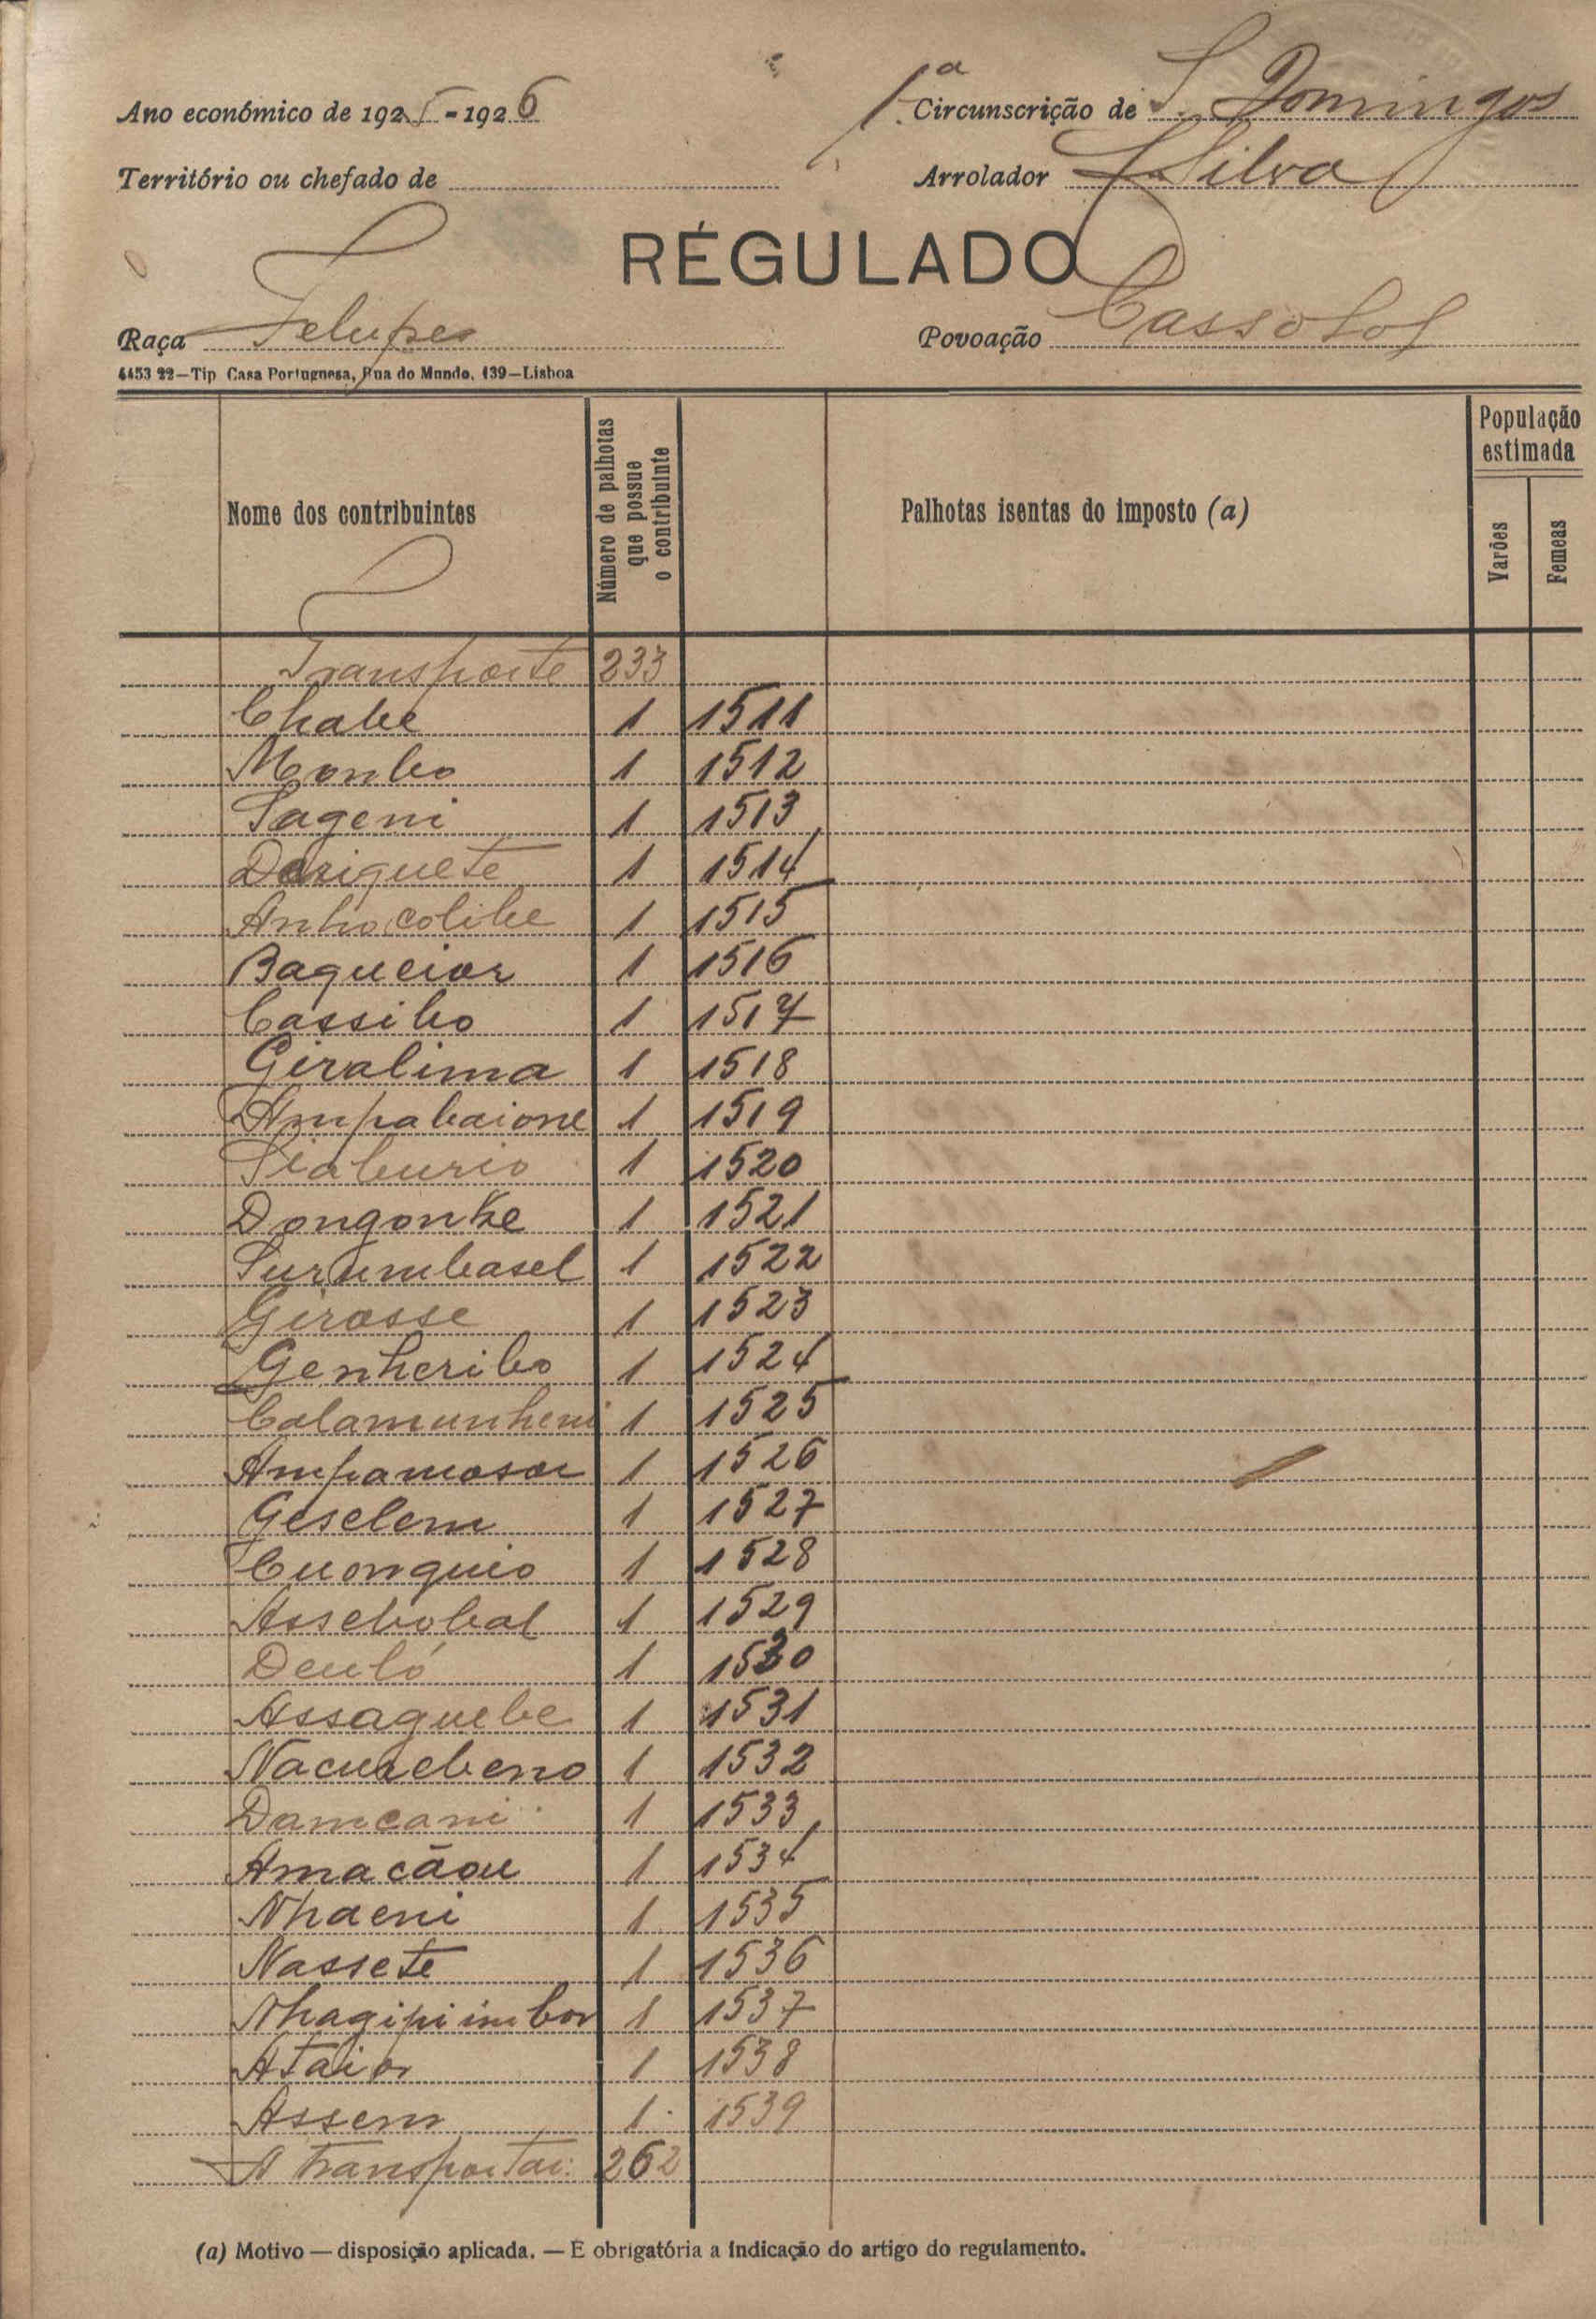 Ano económico de 1925-1926
1.ª Circunscrição de S. Domingos
Território ou chefado de
Arrolador Silva
RÉGULADO
Raça Felupes
Povoação Cassolol
4453 22—Tip Casa Portuguesa, Rua do Mundo, 139—Lisboa
Nome dos contribuintes
Número de palhotas que possue o contribuinte
Palhotas isentas do imposto (a)
População estimada
Varões
Femeas
Transporte 233
Chabe 1 1511
Monbo 1 1512
Sageni 1 1513
Dosiquete 1 1514
Anhocolibe 1 1515
Baqueior 1 1516
Cassibo 1 1517
Giralima 1 1518
Ampabaione 1 1519
Siaburio 1 1520
Dongonke 1 1521
Surumbasel 1 1522
Girosse 1 1523
Genheribo 1 1524
Calamunheni 1 1525
Ampamosor 1 1526
Geselem 1 1527
Cuonquio 1 1528
Assebobal 1 1529
Deuló 1 1530
Assaguebe 1 1531
Nacurebeno 1 1532
Damcani 1 1533
Amacãou 1 1534
Nhaeni 1 1535
Nassete 1 1536
Nhagipiimbor 1 1537
Ataior 1 1538
Assem 1 1539
A transportar 262
(a) Motivo — disposição aplicada. — É obrigatória a indicação do artigo do regulamento.